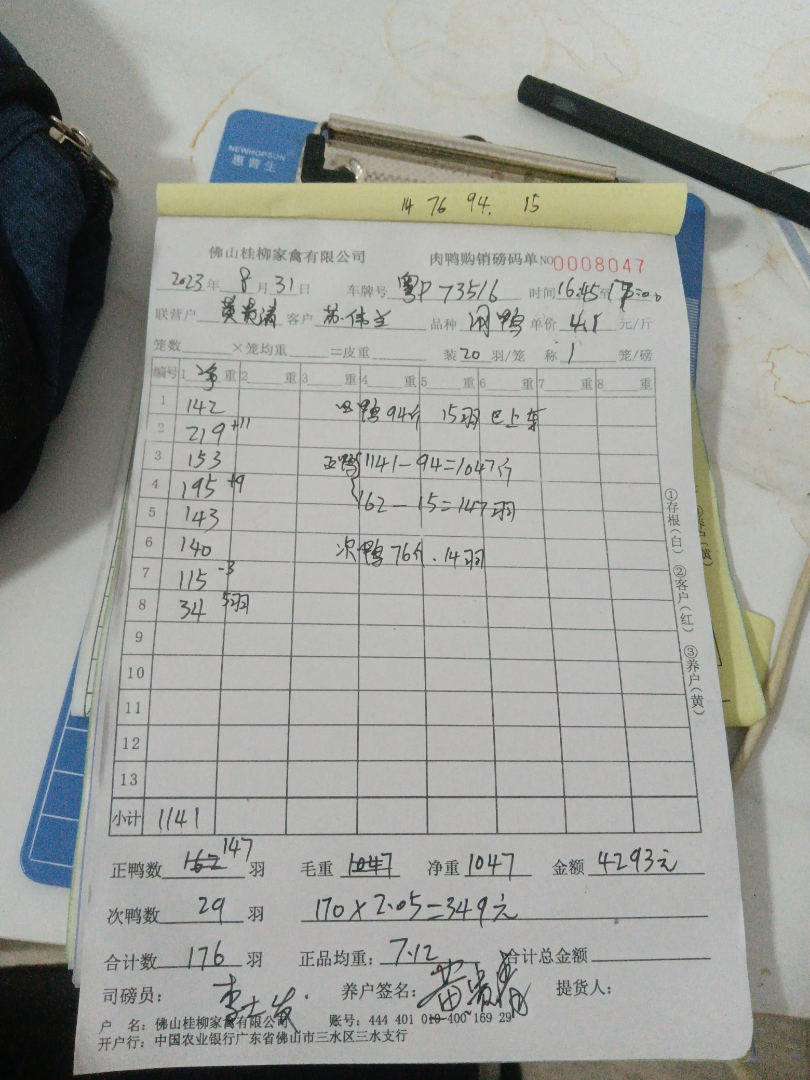 NEWHOPSON
惠普生
14 76 94. 15
佛山桂柳家禽有限公司 肉鸭购销磅码单 NO 0008047
2023年 8月 31日 车牌号 粤P 73516 时间 16:45至17:00
联营户 黄贵清 客户 苏伟兰 品种 肉鸭 单价 4.1 元/斤
笼数 ×笼均重 =皮重 装20羽/笼 称1笼/磅
编号 1净重 2 重 3 重 4 重 5 重 6 重 7 重 8 重
1 142 94斤 15羽 已上车
2 219 +11
3 153 正鸭 1141-94=1047斤
4 195 +9 162-15=147羽
5 143
6 140 次鸭76斤.14羽
7 115 -3
8 34 5羽
9
10
11
12
13
小计 1141
正鸭数 162 147 羽 毛重 1047 净重 1047 金额 4293元
次鸭数 29 羽 170×2.05=349元
合计数 176 羽 正品均重: 7.12 合计总金额
司磅员: 养户签名: 黄贵清 提货人:
户 名: 佛山桂柳家禽有限公司 账号: 444 401 010 400 169 29
开户行: 中国农业银行广东省佛山市三水区三水支行
①存根(白) ②客户(红) ③养户(黄)